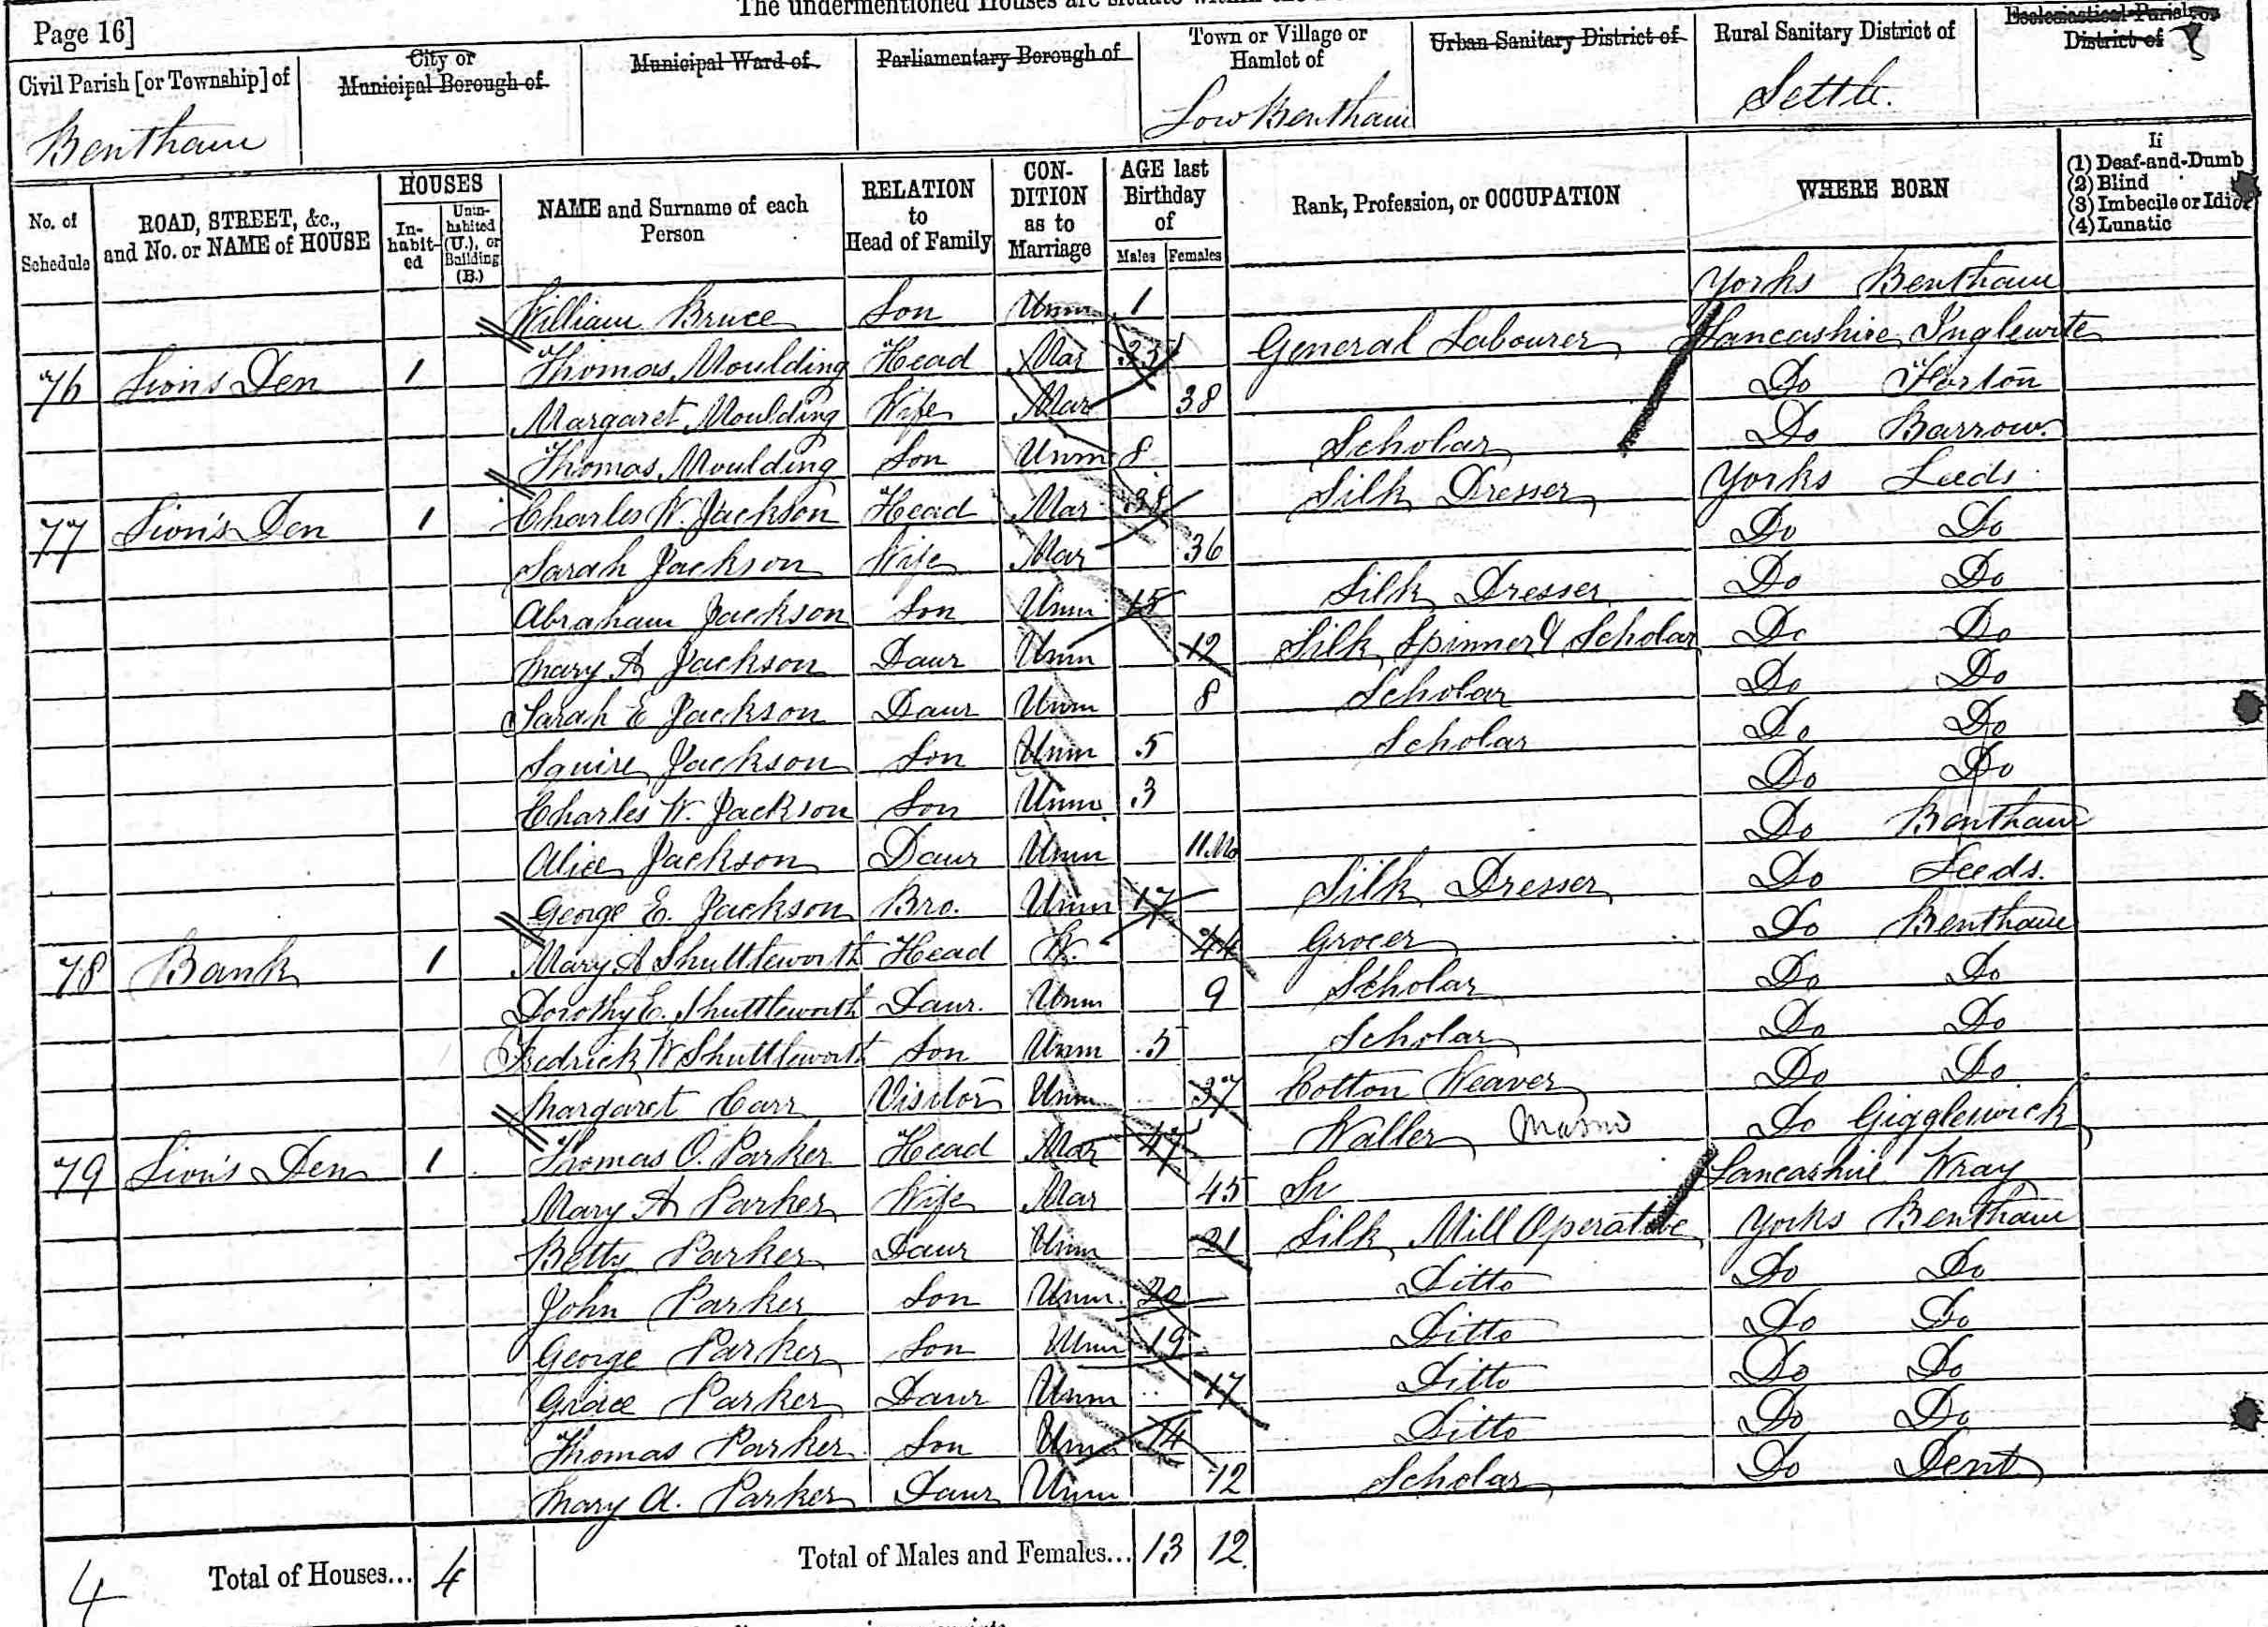 The undermentioned Houses are situate within the
Page 16]
Civil Parish [or Township] of
Bentham
City or
Municipal Borough of
Municipal Ward of
Parliamentary Borough of
Town or Village or
Hamlet of
Low Bentham
Urban Sanitary District of
Rural Sanitary District of
Settle.
Ecclesiastical Parish or
District of
No. of Schedule
ROAD, STREET, &c., and No. or NAME of HOUSE
HOUSES
In-habit-ed
Unin-habited (U.), or Building (B.)
NAME and Surname of each Person
RELATION to Head of Family
CON-DITION as to Marriage
AGE last Birthday of
Males Females
Rank, Profession, or OCCUPATION
WHERE BORN
If
(1) Deaf-and-Dumb
(2) Blind
(3) Imbecile or Idiot
(4) Lunatic
William Bruce Son Unm 1 Yorks Bentham
76 Lion's Den 1 Thomas Moulding Head Mar General Labourer Lancashire Inglewite
Margaret Moulding Wife Mar 38 Do Horton
Thomas Moulding Son Unm 8 Scholar Do Barrow.
77 Lion's Den 1 Charles W. Jackson Head Mar 38 Silk Dresser Yorks Leeds
Sarah Jackson Wife Mar 36 Do Do
Abraham Jackson Son Unm 15 Silk Dresser Do Do
Mary A Jackson Daur Unm 12 Silk Spinner & Scholar Do Do
Sarah E Jackson Daur Unm 8 Scholar Do Do
Squire Jackson Son Unm 5 Scholar Do Do
Charles W. Jackson Son Unm 3 Do Do
Alice Jackson Daur Unm 11 Mo Do Bentham
George E. Jackson Bro. Unm 17 Silk Dresser Do Leeds.
78 Bank 1 Mary A Shuttleworth Head W. 44 Grocer Do Bentham
Dorothy E. Shuttleworth Daur. Unm 9 Scholar Do Do
Fredrick W Shuttleworth Son Unm 5 Scholar Do Do
Margaret Carr Visitor Unm 37 Cotton Weaver Do Do
79 Lion's Den 1 Thomas O. Parker Head Mar 47 Waller Mason Do Gigglewick
Mary A Parker Wife Mar 45 Lancashire Wray
Betty Parker Daur Unm 21 Silk Mill Operative Yorks Bentham
John Parker Son Unm. 20 Ditto Do Do
George Parker Son Unm 19 Ditto Do Do
Grace Parker Daur Unm 17 Ditto Do Do
Thomas Parker Son Unm 14 Ditto Do Do
Mary A. Parker Daur Unm 12 Scholar Do Dent
4 Total of Houses... 4 Total of Males and Females... 13 12